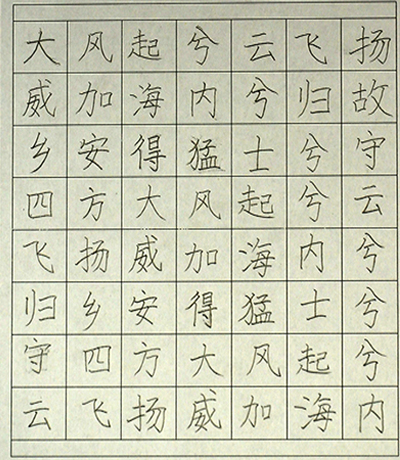 大风起兮云飞扬
威加海内兮归故
乡安得猛士兮守
四方大风起兮云
飞扬威加海内兮
归乡安得猛士兮
守四方大风起兮
云飞扬威加海内